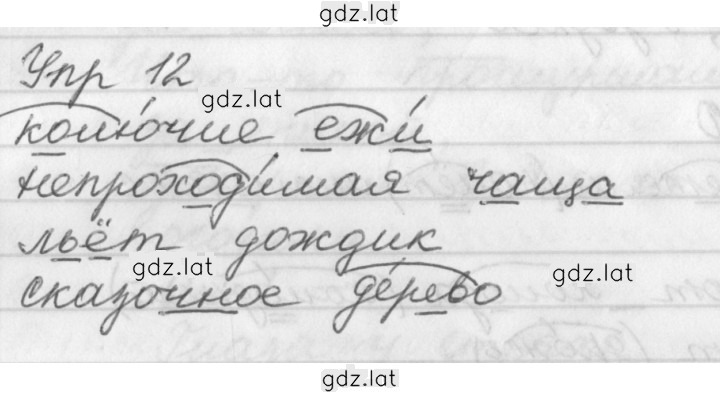 gdz.lat
Упр 12
gdz.lat
колючие ежи
непроходимая чаща
льёт дождик
gdz.lat
gdz.lat
сказочное дерево
gdz.lat